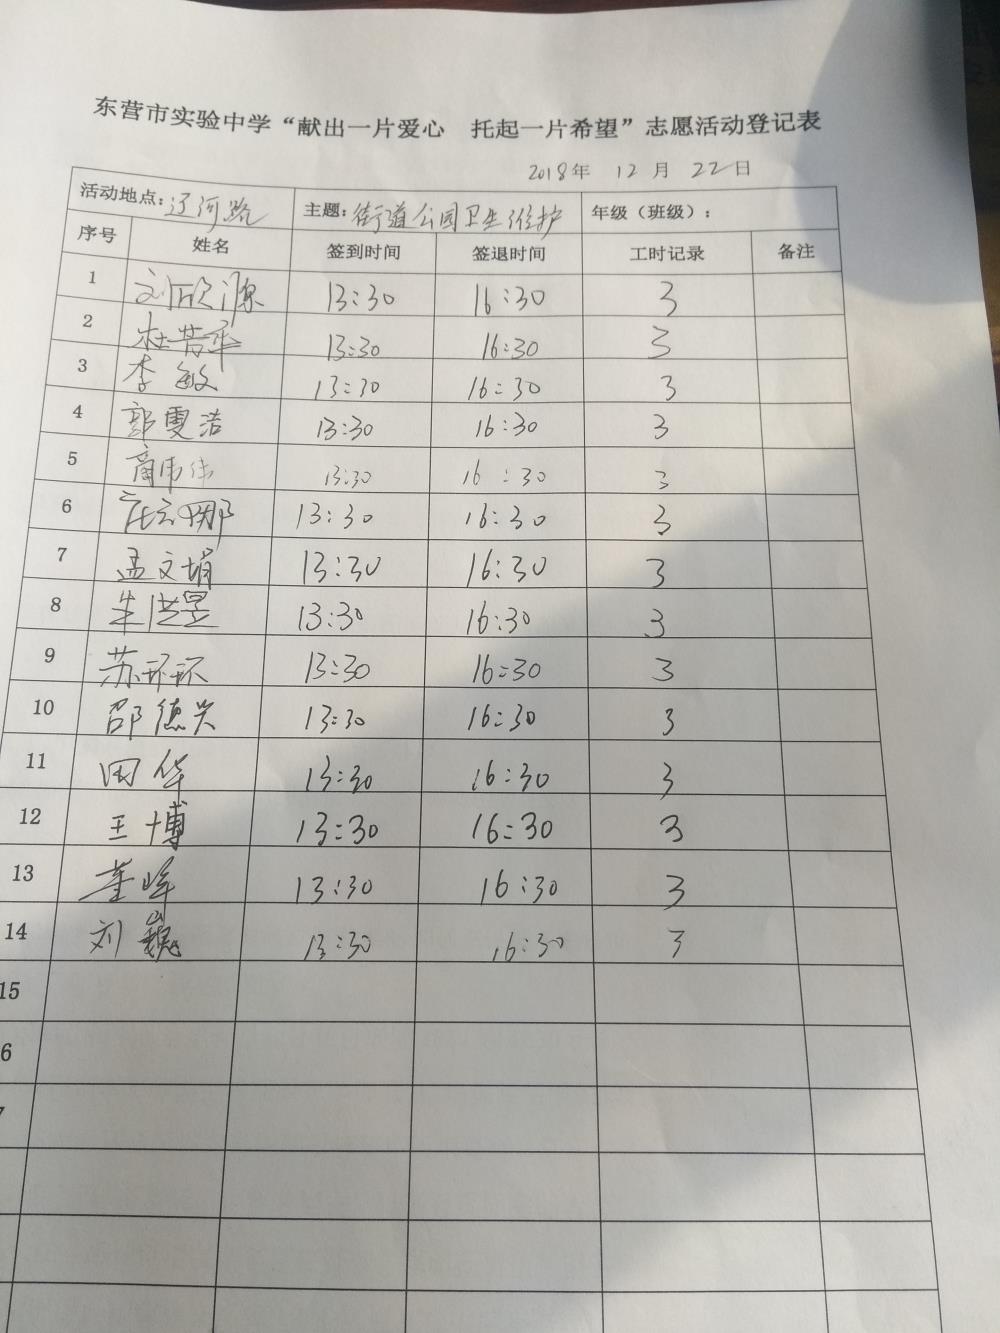 东营市实验中学“献出一片爱心 托起一片希望”志愿活动登记表
2018年 12月 22日
活动地点：辽河路 主题：街道公园卫生维护 年级（班级）：
序号 姓名 签到时间 签退时间 工时记录 备注
1 刘欣源 13:30 16:30 3
2 杜芳平 13:30 16:30 3
3 李敏 13:30 16:30 3
4 郭雯浩 13:30 16:30 3
5 商伟伟 13:30 16:30 3
6 13:30 16:30 3
7 孟文娟 13:30 16:30 3
8 朱洪昱 13:30 16:30 3
9 苏环环 13:30 16:30 3
10 邵德兴 13:30 16:30 3
11 田华 13:30 16:30 3
12 王博 13:30 16:30 3
13 董峰 13:30 16:30 3
14 刘巍 13:30 16:30 3
15
6